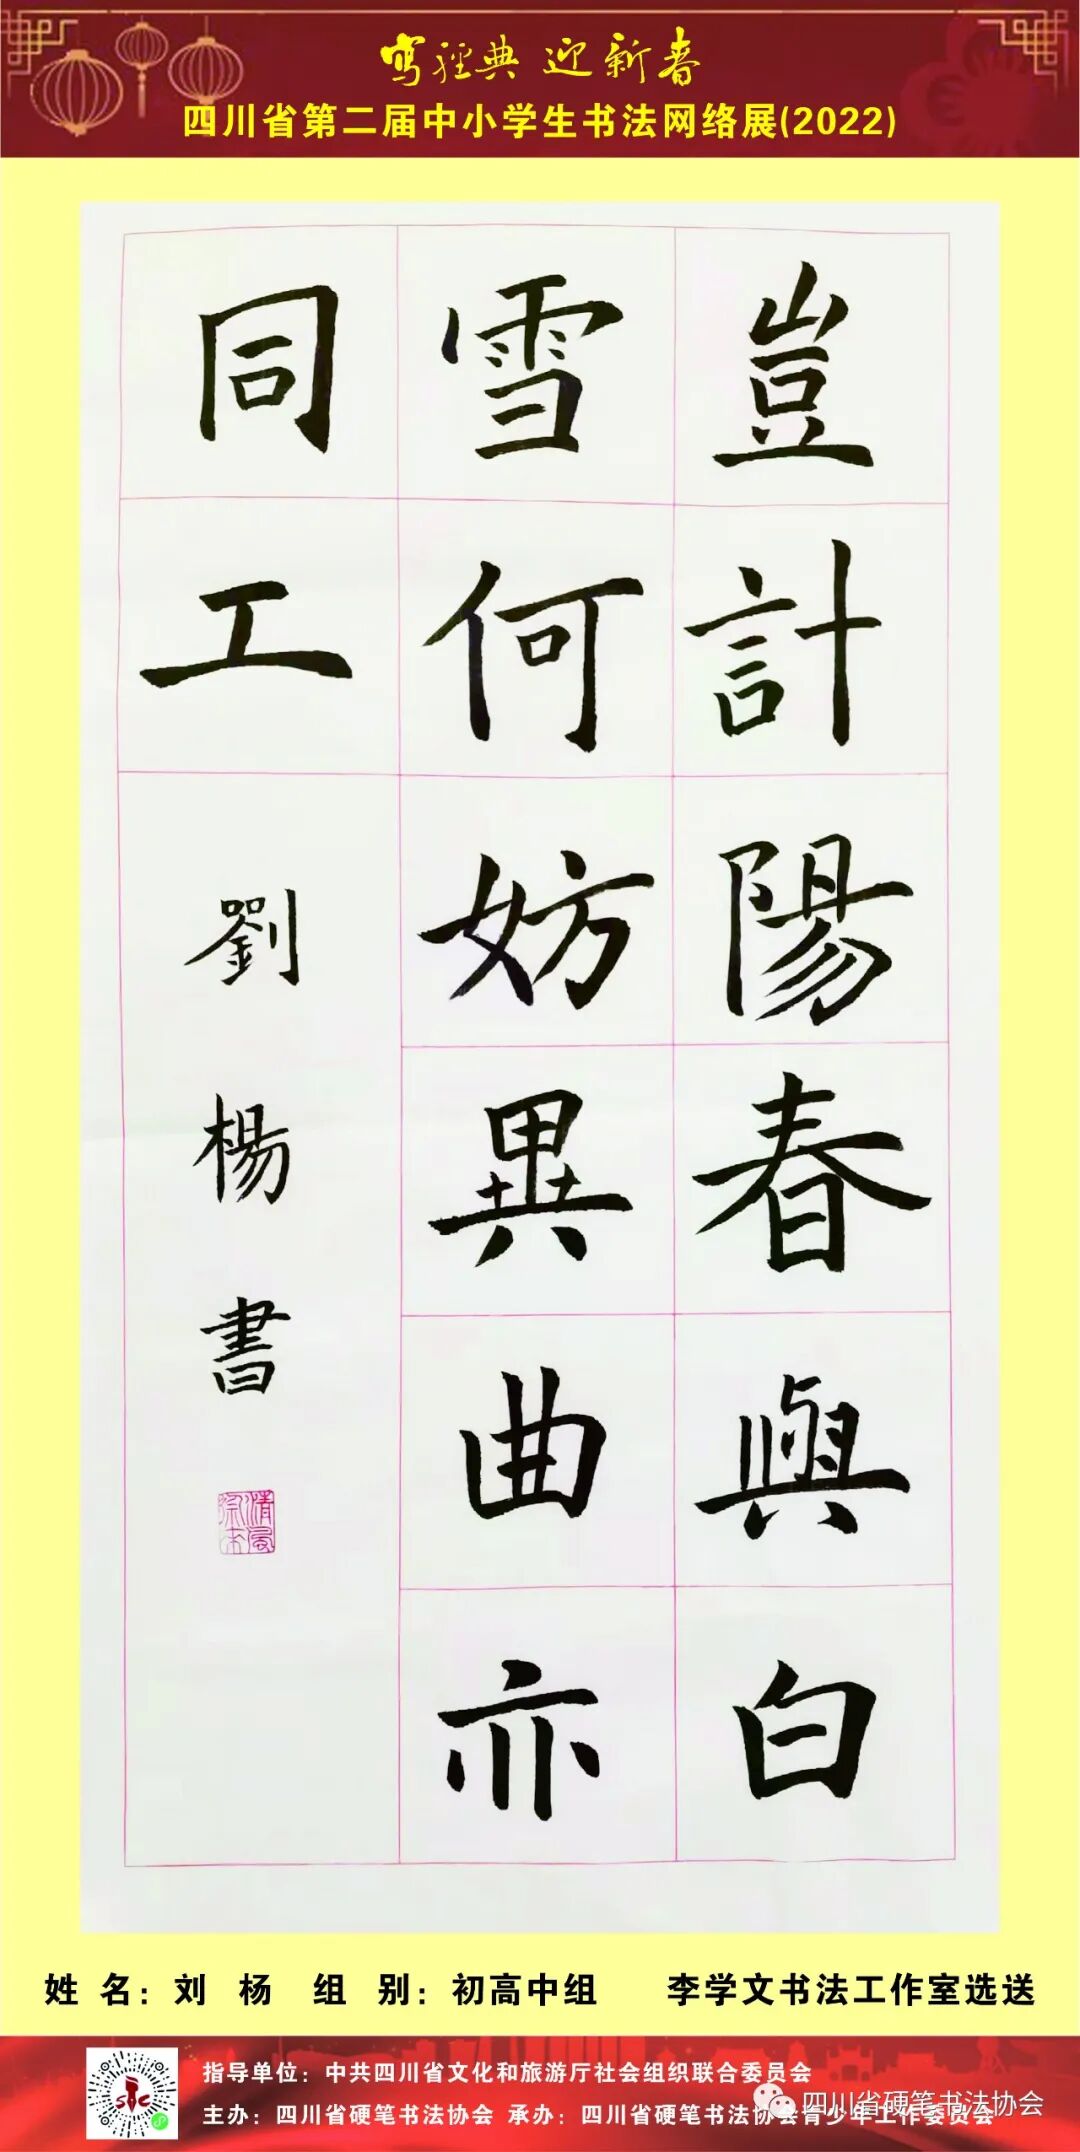 写經典 迎新春
四川省第二届中小学生书法网络展(2022)
豈計陽春與白
雪何妨異曲亦
同工
劉楊書
姓 名：刘 杨 组 别：初高中组 李学文书法工作室选送
指导单位：中共四川省文化和旅游厅社会组织联合委员会
主办：四川省硬笔书法协会 承办：四川省硬笔书法协会青少年工作委员会
四川省硬笔书法协会